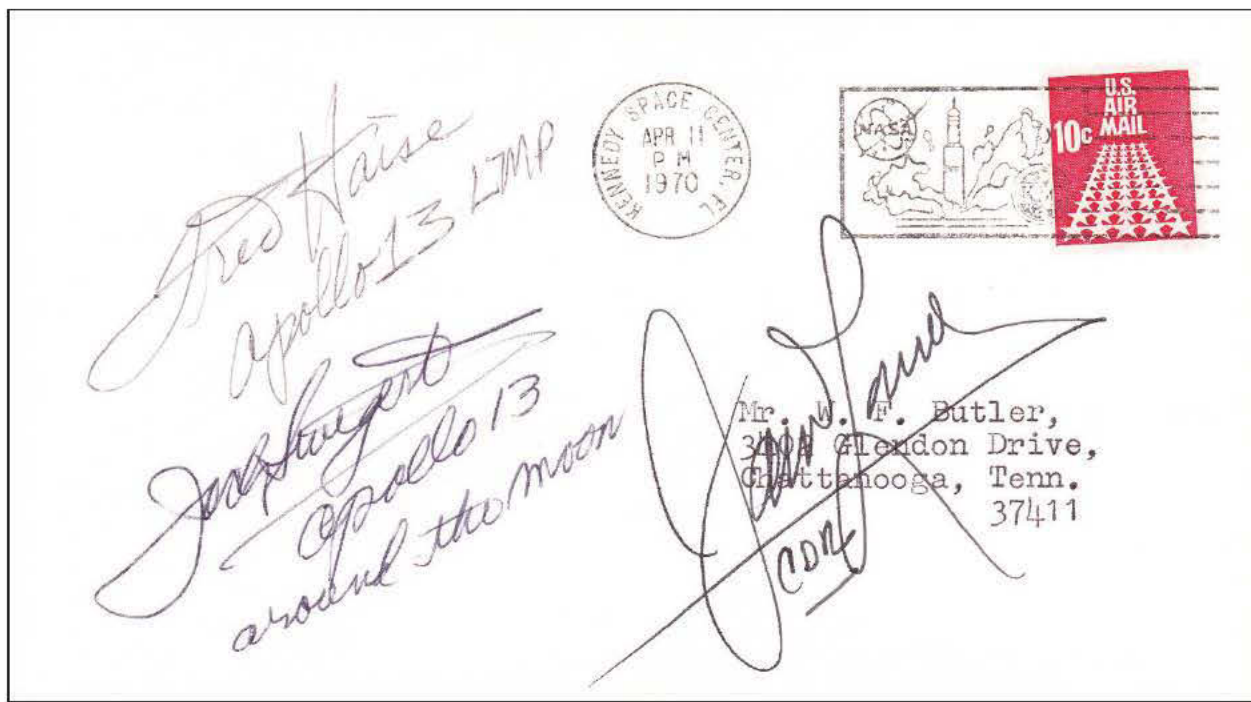 Fred Haise
Apollo 13 LMP
Jack Swigert
Apollo 13
around the moon
KENNEDY SPACE CENTER, FL
APR 11
PM
1970
NASA
U.S.
AIR
MAIL
10c
James Lovell
CDR
Mr. W. F. Butler,
Glendon Drive,
Chattanooga, Tenn.
37411